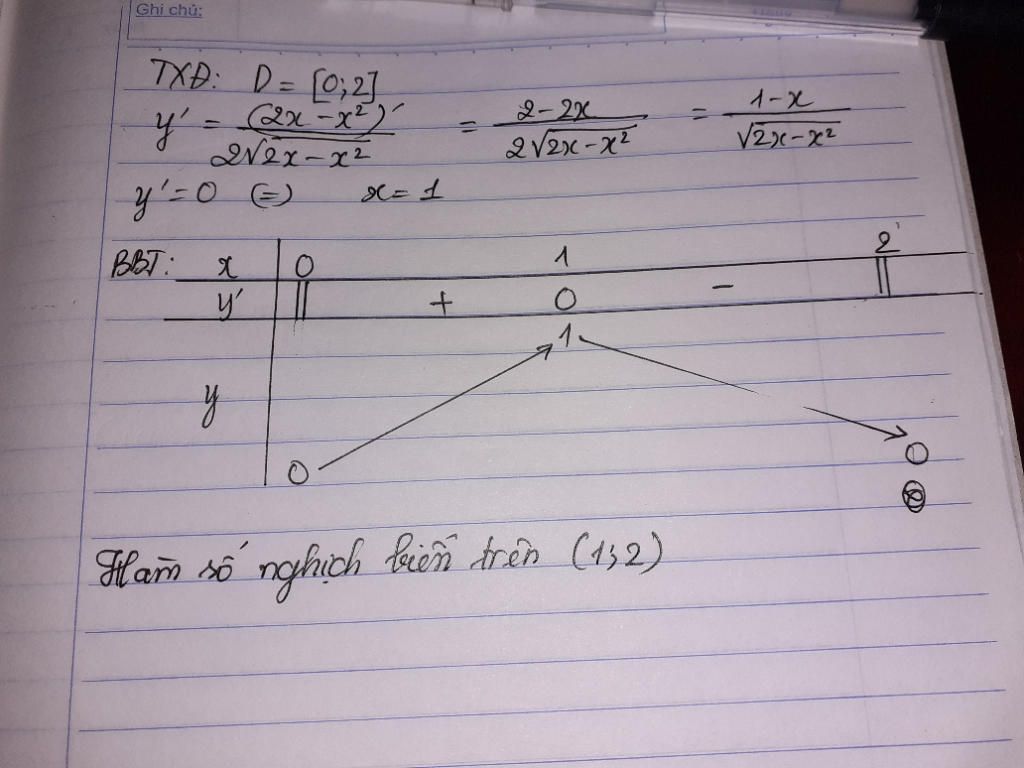 Ghi chú:
TXĐ: D = [0;2]
y' = (2x - x²)' / 2√2x - x² = 2 - 2x / 2√2x - x² = 1 - x / √2x - x²
y' = 0 (=) x = 1
BBT: x 0 1 2
y' || + 0 - ||
1
y
0 0
Hàm số nghịch biến trên (1;2)